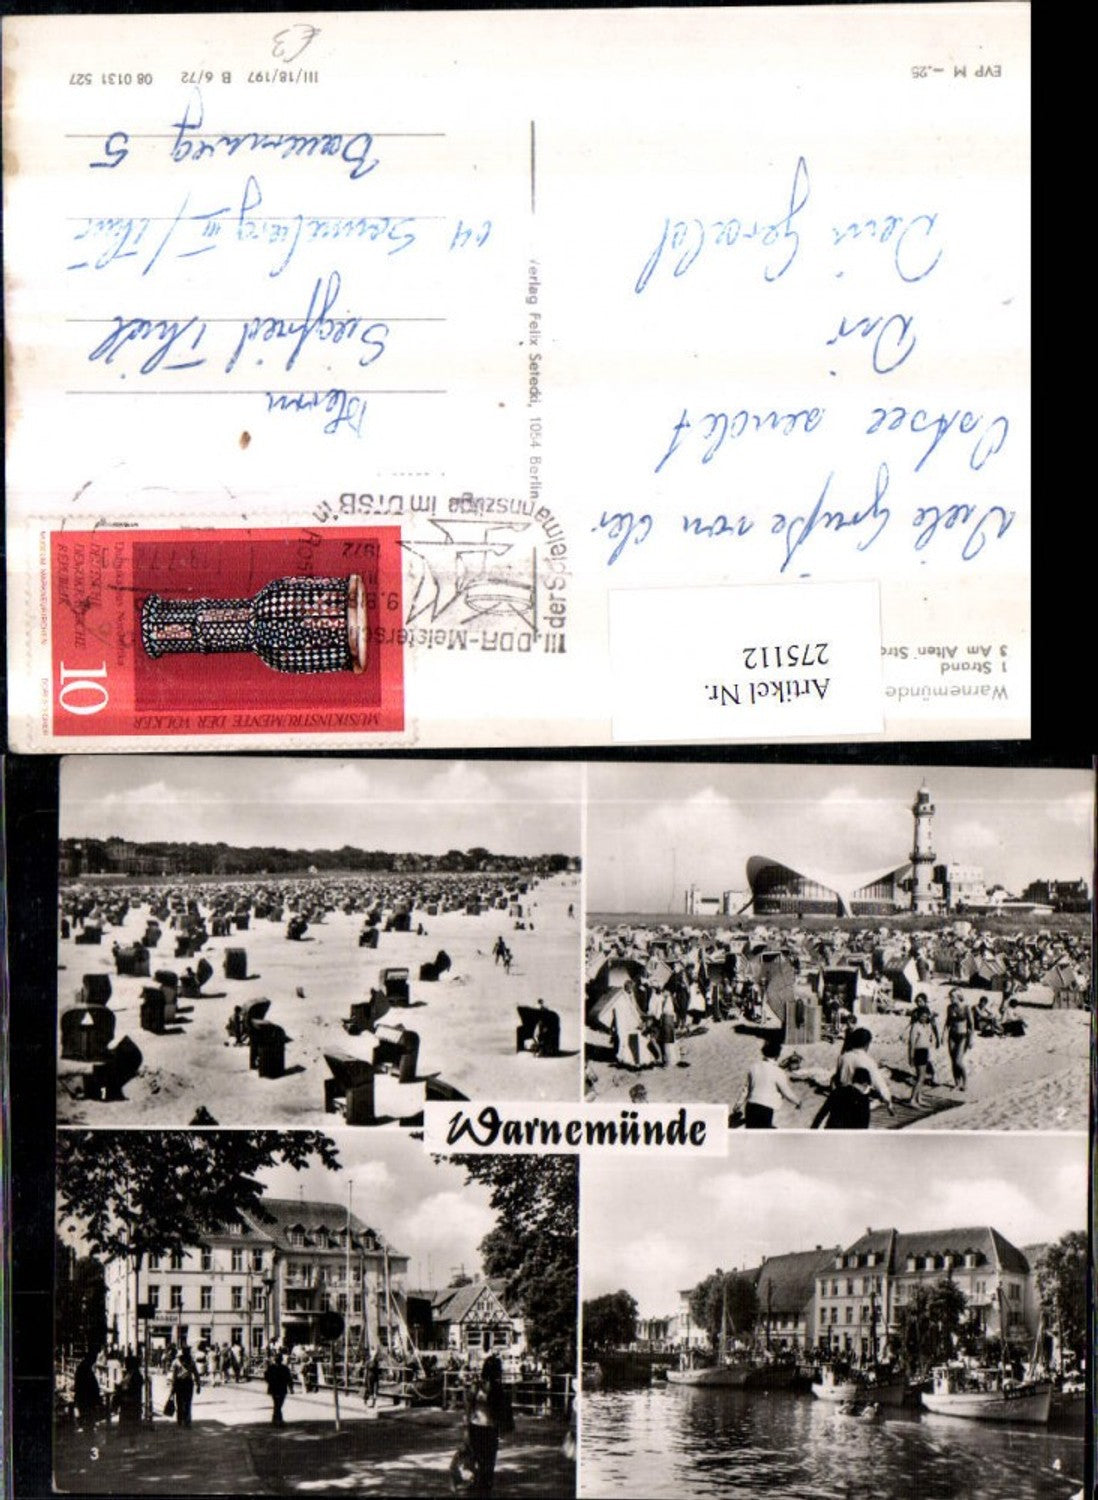 Warnemünde
1 Strand
3 Am Alten Stro
Artikel Nr.
275112
Viele Grüße von der
Ostsee sendet
Dir
Dein Gerald
EVP M –,25
Verlag Felix Setecki, 1054 Berlin
III. DDR-Meistersch
der Spielmannszüge im DTSB
in Rost
1972
MUSIKINSTRUMENTE DER VÖLKER
10
DEUTSCHE
DEMOKRATISCHE
REPUBLIK
MUSEUM MARKNEUKIRCHEN
Herrn
Siegfried Thiel
64 Sonneberg III / Thür
5
III/18/197 B 6/72 08 0131 527
£3
Warnemünde
1
2
3
4